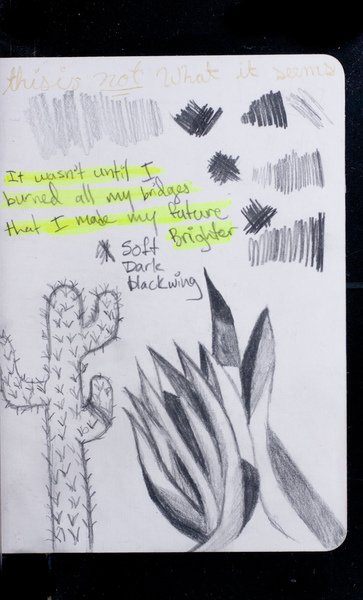 this is not what it seems
It wasn't until I
burned all my bridges
that I made my future
Brighter
Soft
Dark
blackwing